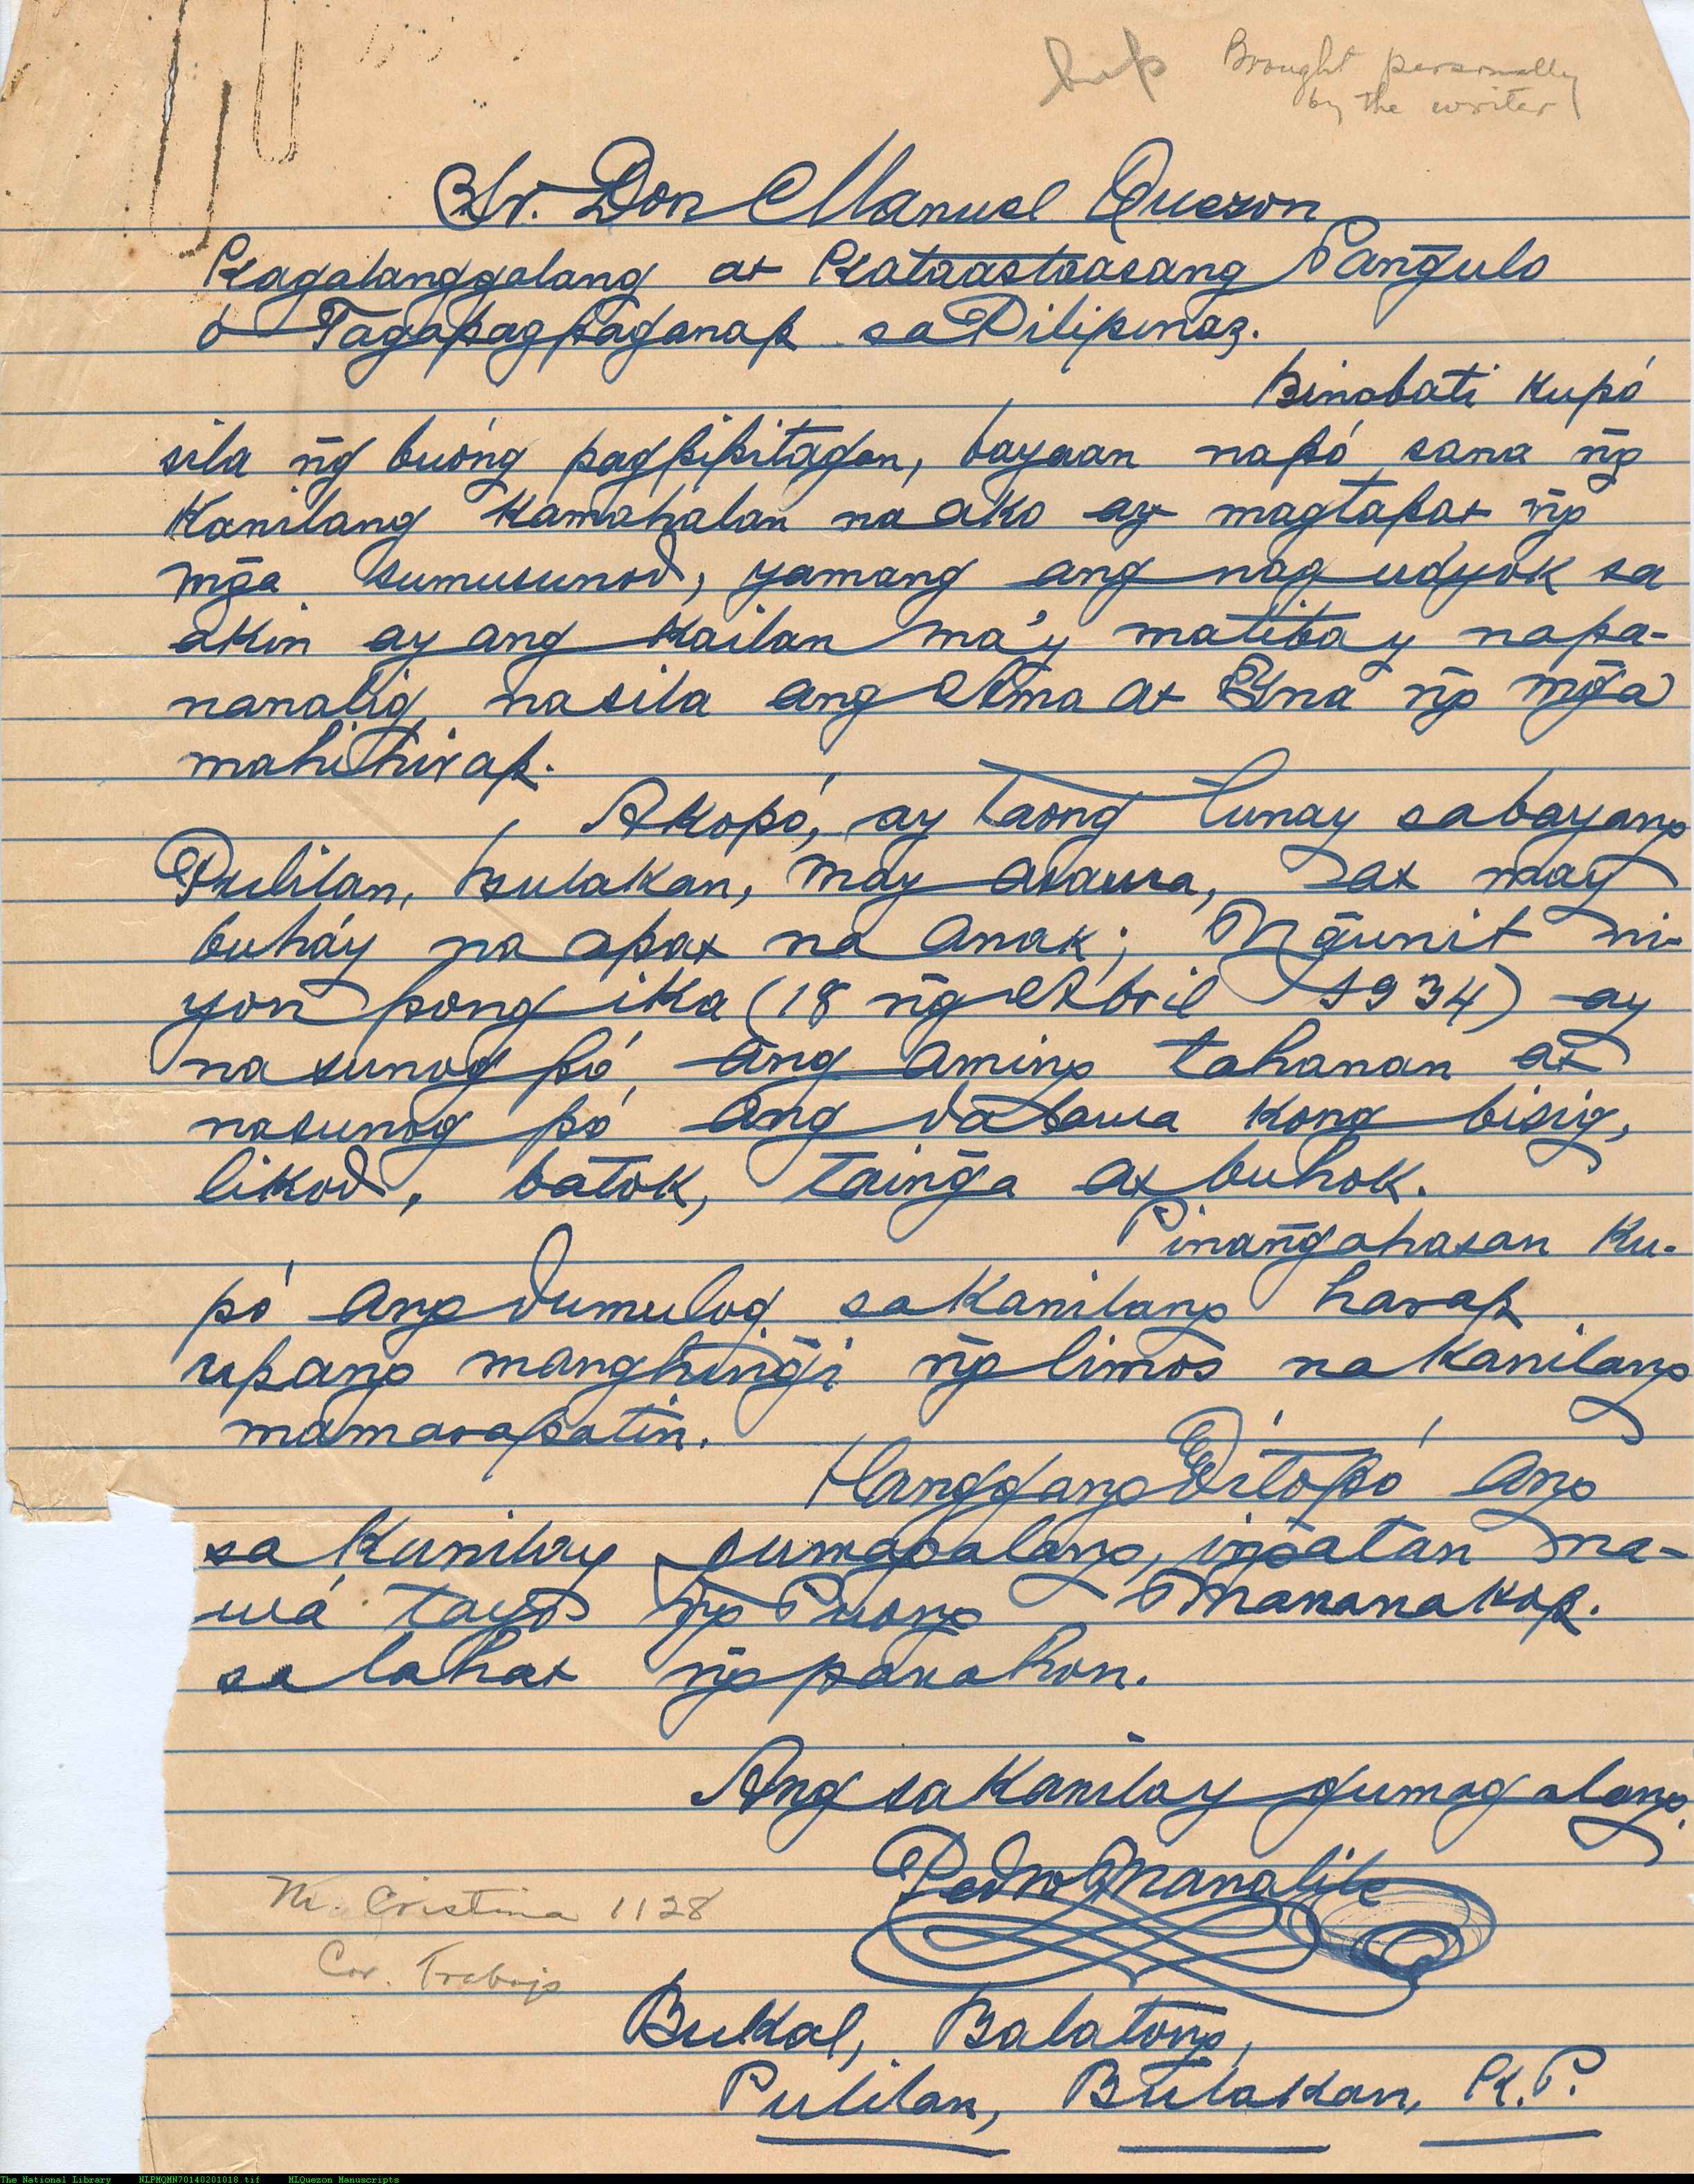 Brought personally
by the writer
Sr. Don Manuel Quezon
Kagalanggalang at Kataastaasang Pangulo
ó Tagapagpaganap sa Pilipinas.
Binabati kupó
sila n̄g buóng pagpipitagan, bayaan napó sana n̄g
Kanilang Kamahalan na ako ay magtapat n̄g
mḡa sumusunod, yamang ang nag udyok sa
akin ay ang kailan ma'y matibay napa-
nanalig, na sila ang Ama at Yna n̄g mḡa
mahihirap.
Akopó, ay taong tunay sabayang
Pulilan, Bulakan, may asawa, at may
buháy na apat na anak; N̄gunit ni-
yon pong ika (18 n̄g Abril 1934) ay
nasunog pó ang aming tahanan at
nasunog pó ang dalawa kong bisig,
likod, batok, tain̄ga at buhok.
Pinan̄gahasan ku-
pó ang dumulog sa kanilang harap
upang manghin̄gi n̄g limos na kanilang
mamarapatin.
Hanggang ditopó ang
sa kanilay gumagalang, in̄gatan na-
wá tayo n̄g Puong Mananakop.
sa lahat n̄g panahon.
Ang sa kanilay gumagalang,
Pedro Manalili
M. Cristina 1128
Cor. Trabajo
Bukal, Balatong,
Pulilan, Bulakan, K.P.
The National Library NLPMQMN70140201018.tif MLQuezon Manuscripts